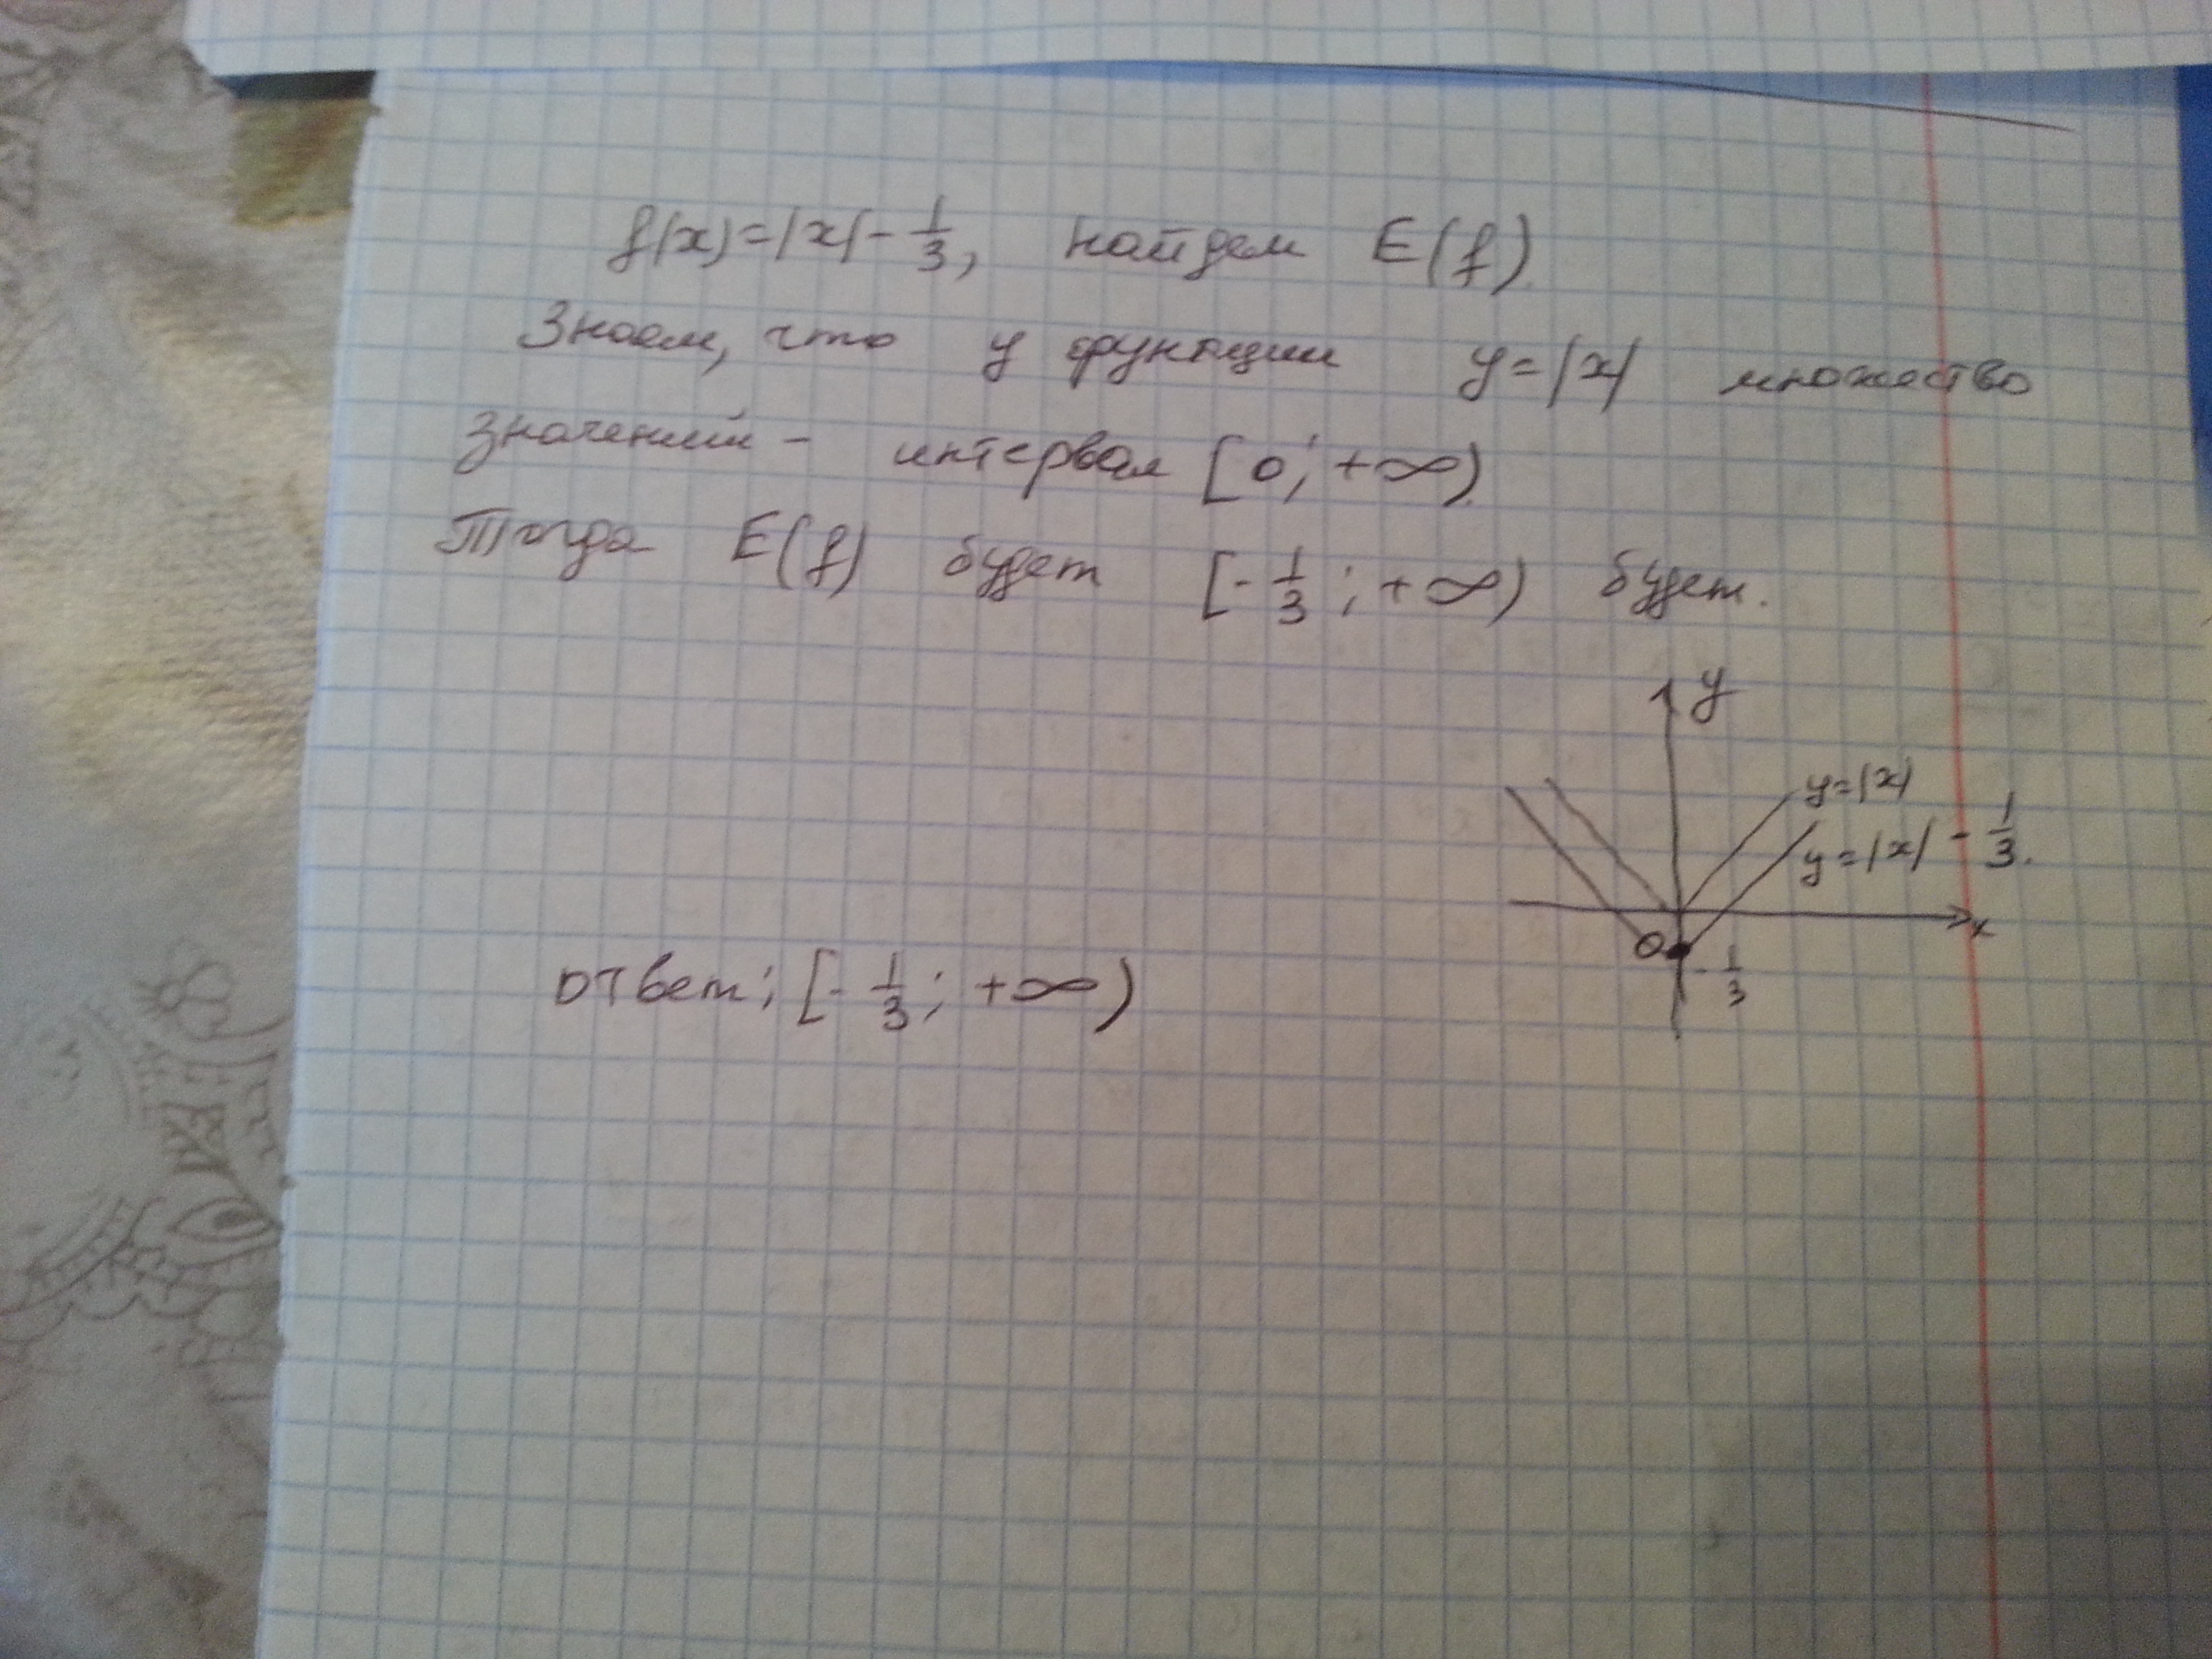 f(x)=|x|-1/3, найдем E(f).
Знаем, что у функции y=|x| множество
значений - интервал [0; +∞).
Тогда E(f) будет [-1/3; +∞) будет.
y
y=|x|
y=|x| - 1/3.
x
0
-1/3
ответ: [-1/3; +∞)